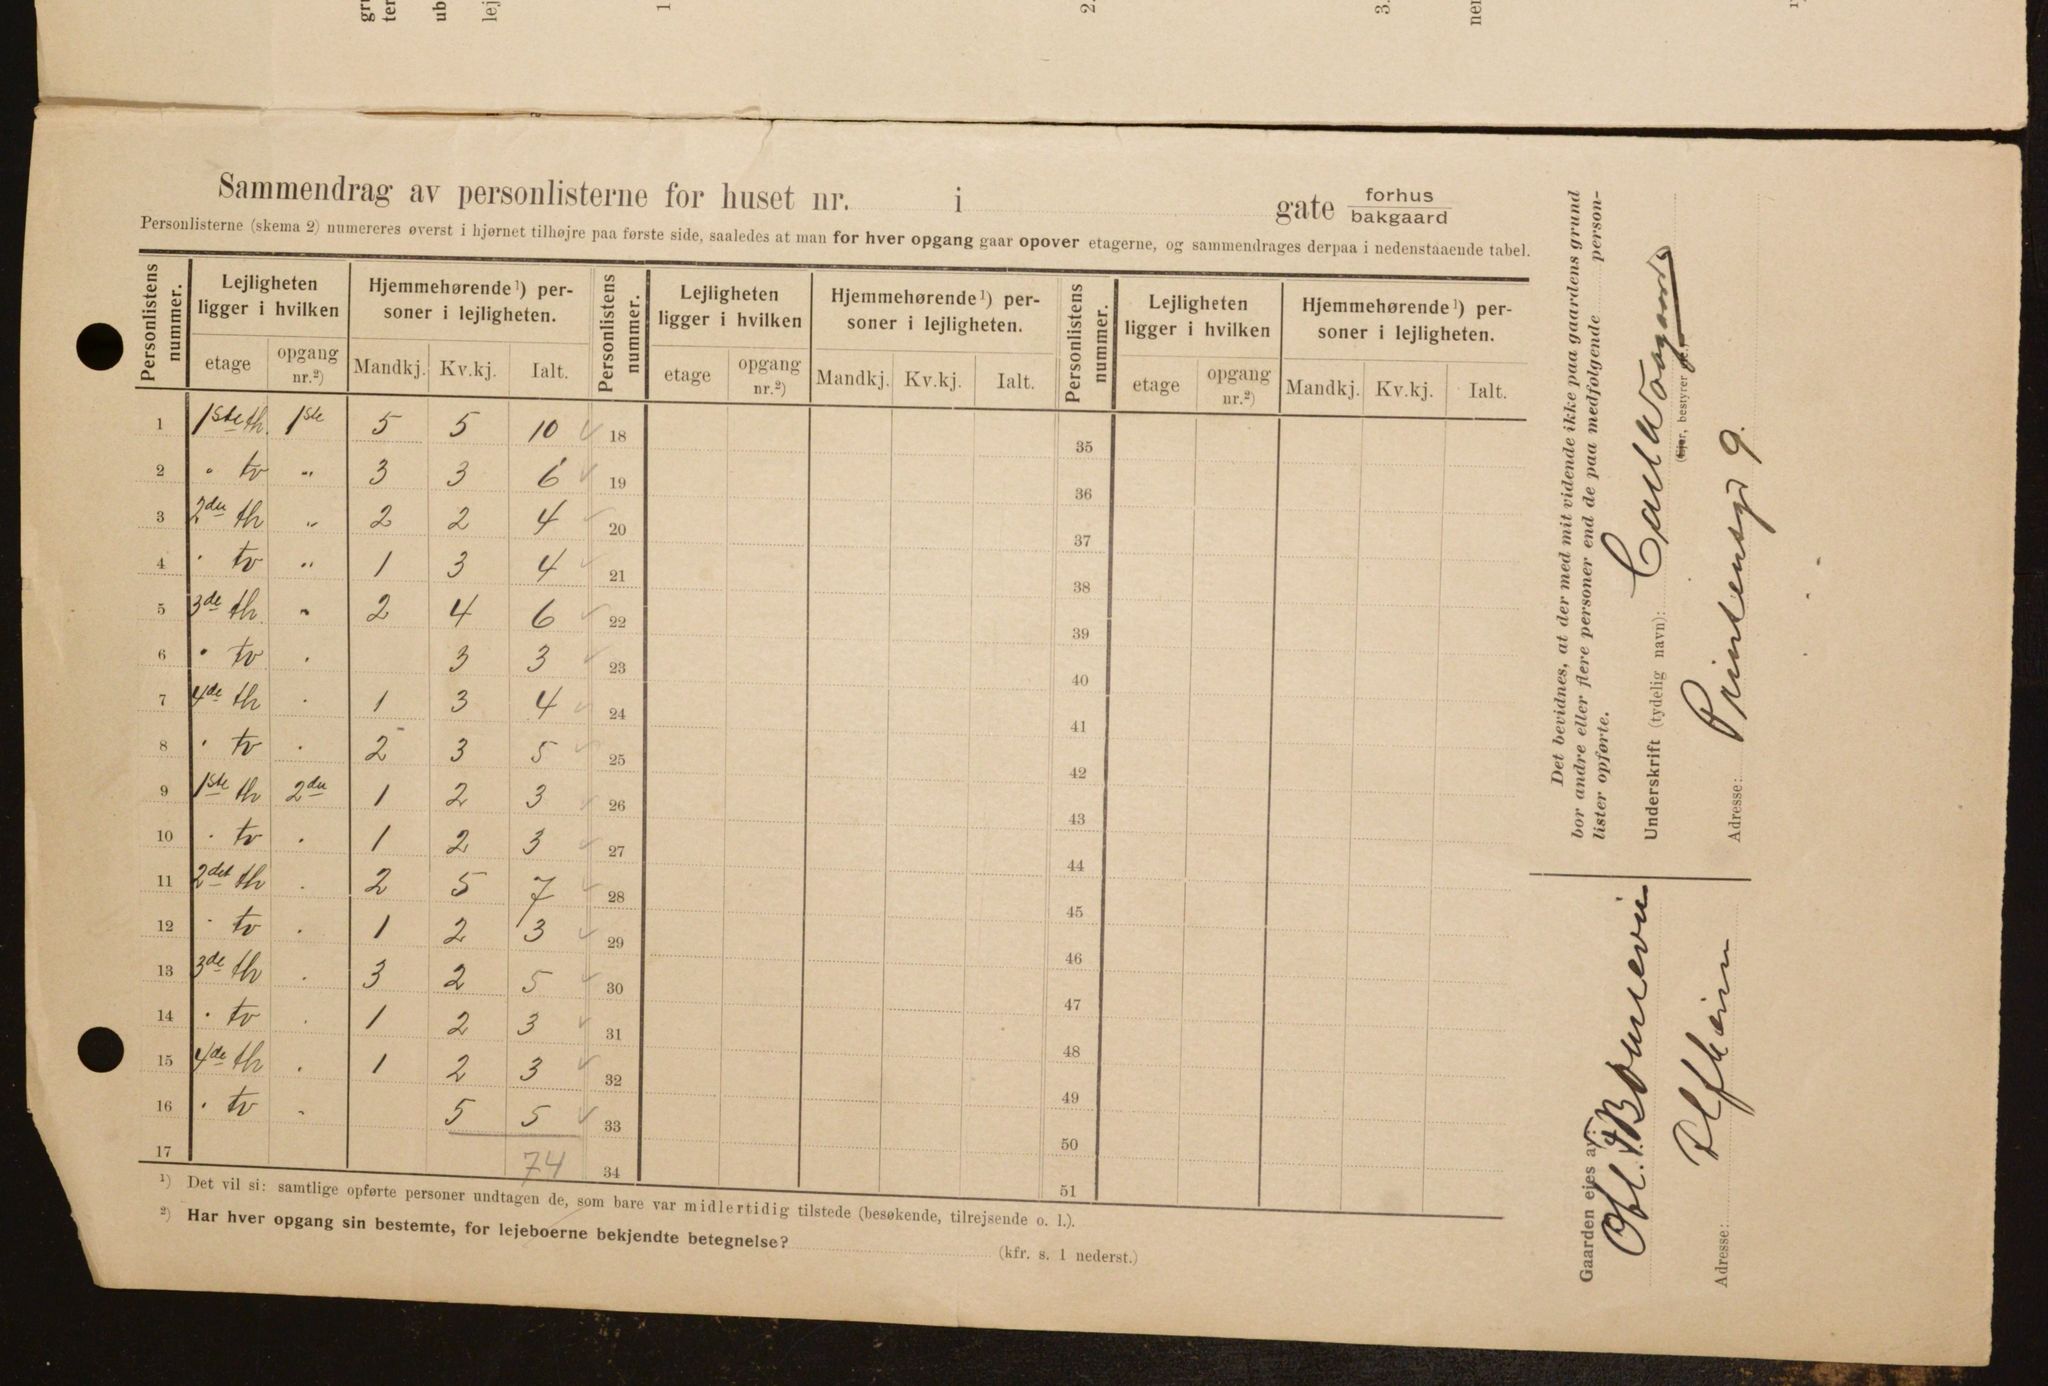 Sammendrag av personlisterne for huset nr. i gate forhus bakgaard
Personlisterne (skema 2) numereres øverst i hjørnet tilhøjre paa første side, saaledes at man for hver opgang gaar opover etagerne, og sammendrages derpaa i nedenstaaende tabel.
Personlistens nummer. Lejligheten ligger i hvilken Hjemmehørende ¹) personer i lejligheten. Personlistens nummer. Lejligheten ligger i hvilken Hjemmehørende ¹) personer i lejligheten. Personlistens nummer. Lejligheten ligger i hvilken Hjemmehørende ¹) personer i lejligheten.
etage opgang nr.²) Mandkj. Kv.kj. Ialt. etage opgang nr.²) Mandkj. Kv.kj. Ialt. etage opgang nr.²) Mandkj. Kv.kj. Ialt.
1 1ste th. 1ste 5 5 10 18 35
2 " tv " 3 3 6 19 36
3 2den th " 2 2 4 20 37
4 " tv " 1 3 4 21 38
5 3de th. " 2 4 6 22 39
6 " tv " 3 3 23 40
7 4de th " 1 3 4 24 41
8 " tv " 2 3 5 25 42
9 1ste th 2den 1 2 3 26 43
10 " tv " 1 2 3 27 44
11 2det th " 2 5 7 28 45
12 " tv " 1 2 3 29 46
13 3de th " 3 2 5 30 47
14 " tv " 1 2 3 31 48
15 4de th " 1 2 3 32 49
16 " tv " 5 5 33 50
17 74 34 51
¹) Det vil si: samtlige opførte personer undtagen de, som bare var midlertidig tilstede (besøkende, tilrejsende o. l.).
²) Har hver opgang sin bestemte, for lejeboerne bekjendte betegnelse? (kfr. s. 1 nederst.)
Det bevidnes, at der med mit vidende ikke paa gaardens grund
bor andre eller flere personer end de paa medfølgende person-
lister opførte.
Underskrift (tydelig navn): Carl
(Ejer, bestyrer
Adresse: Prinsensgd 9.
Gaarden ejes av: Obl. F. Bonnevie
Adresse: Alfheim